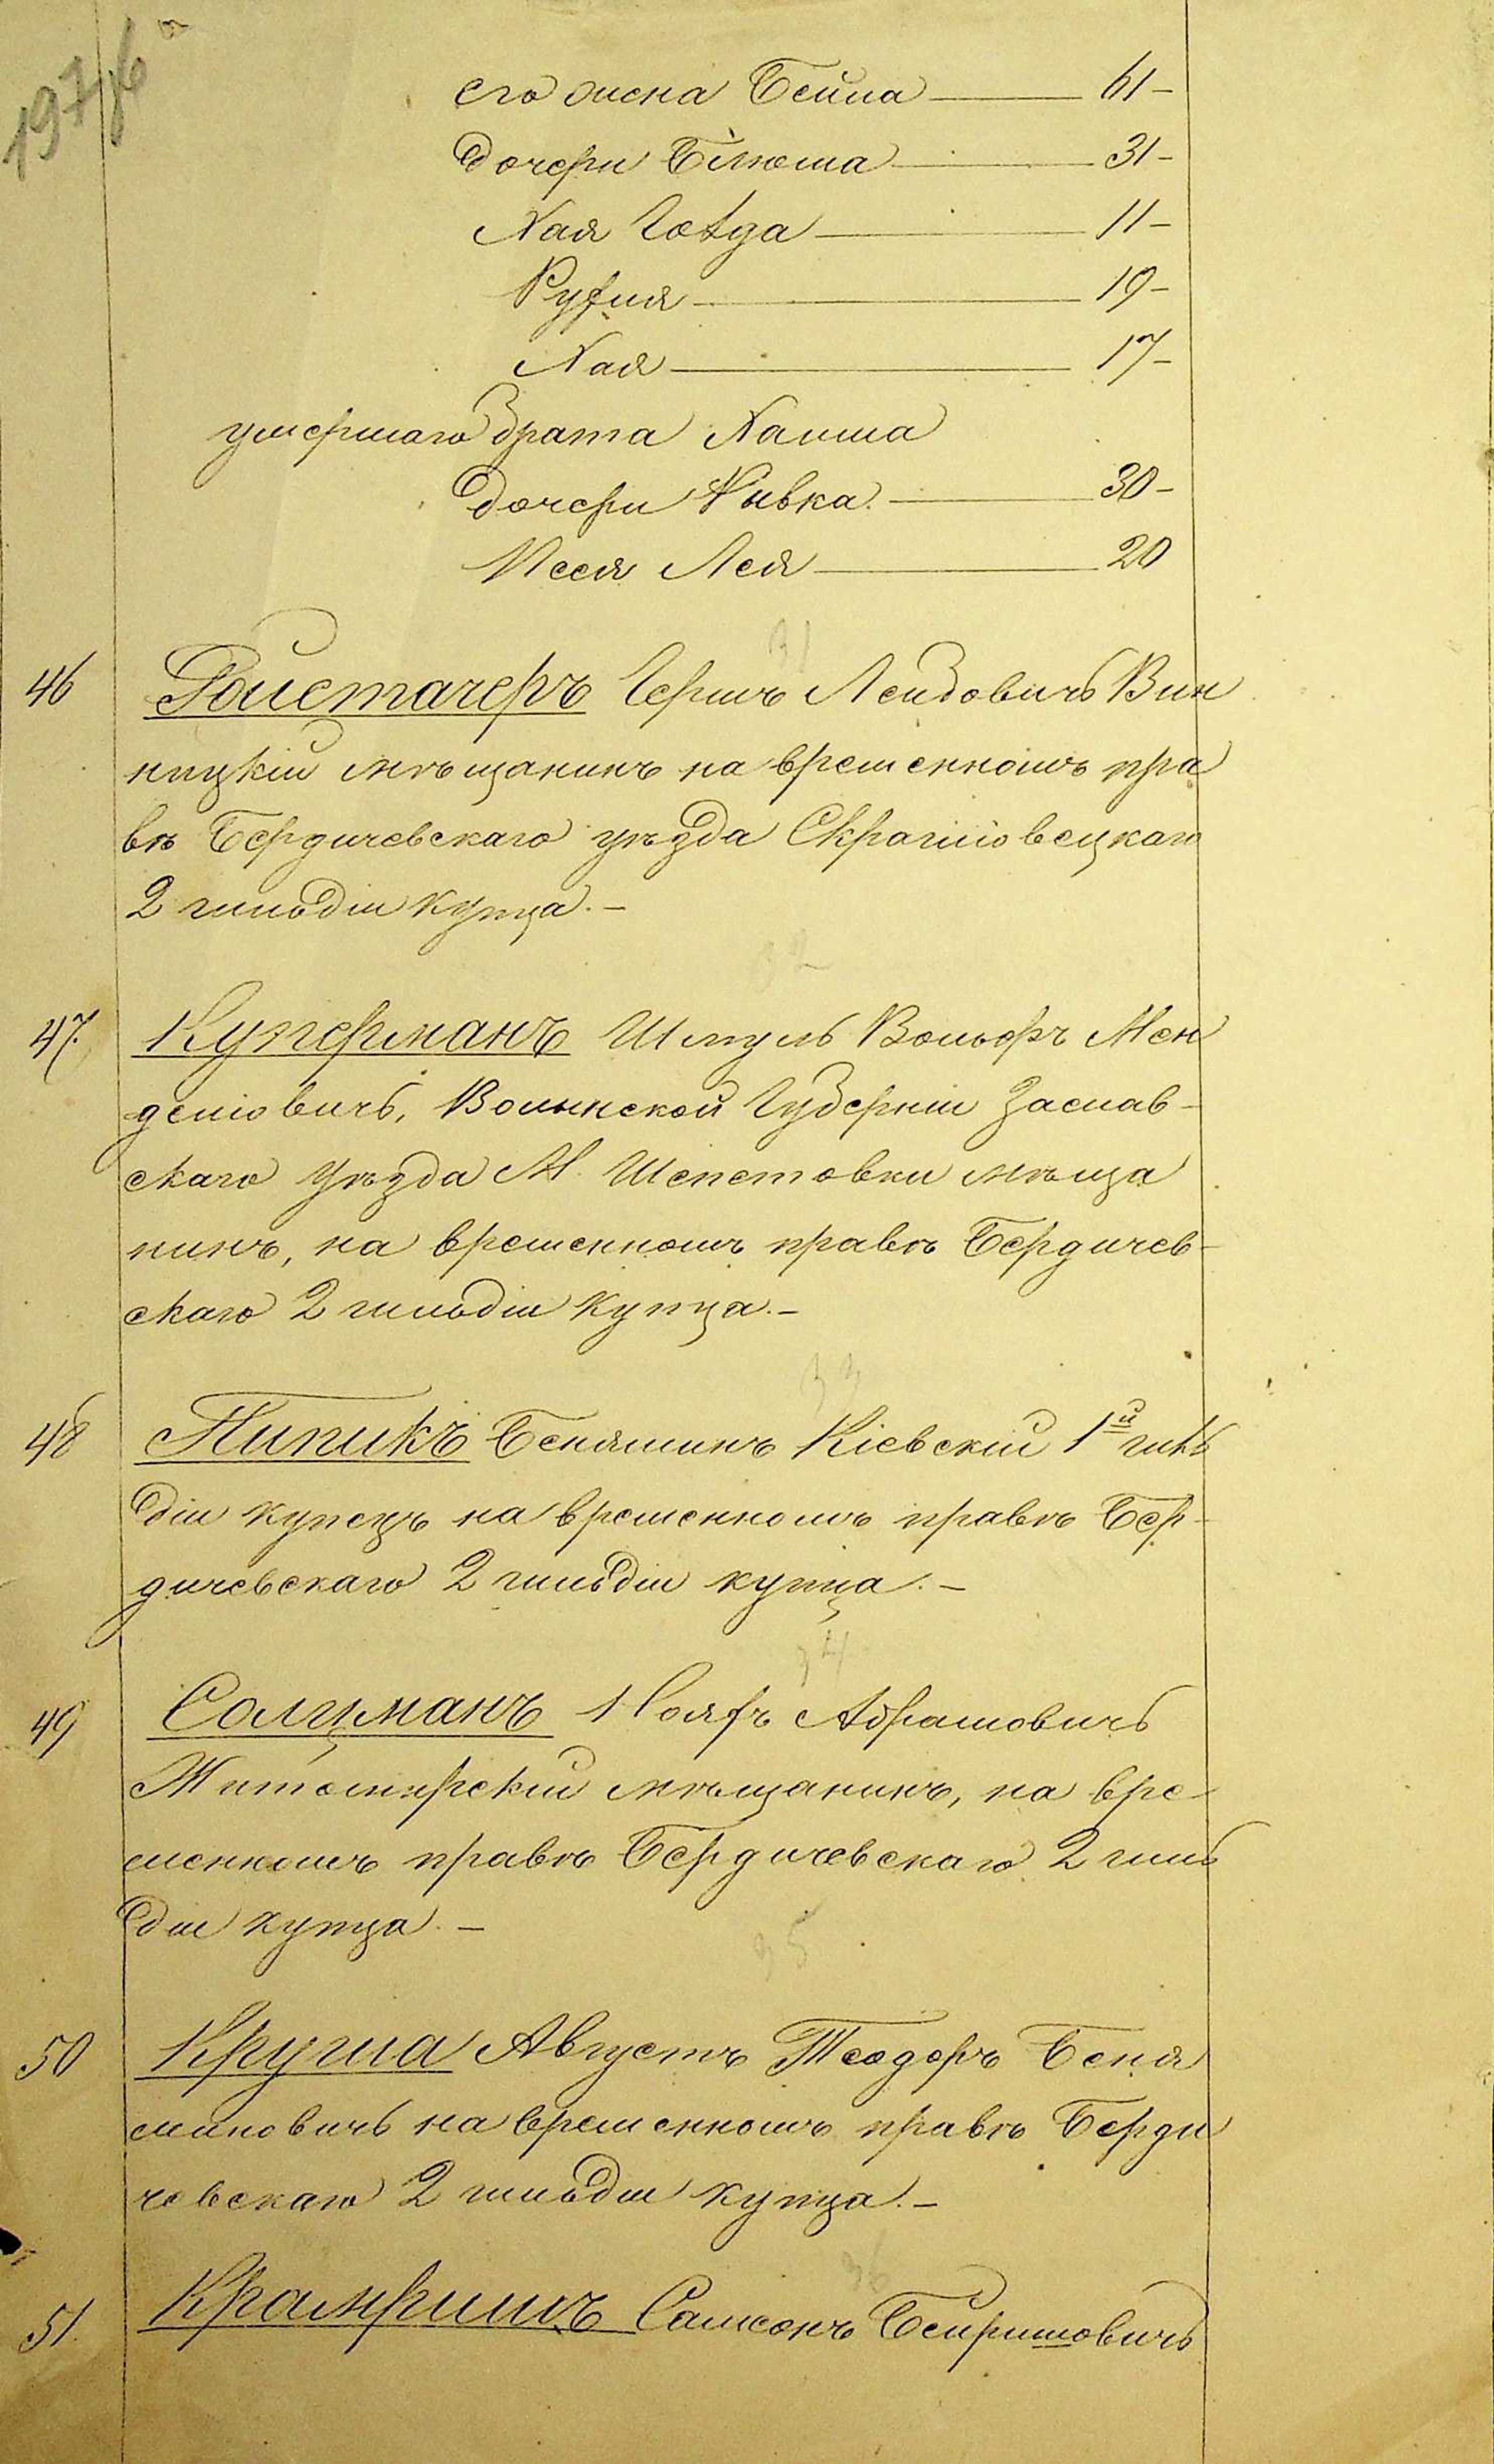 197 об
его жена Бейла — 61 –
дочери Бѣлюма — 31 –
Хая Голда — 11 –
Руфля — 19 –
Хая — 17 –
умершаго брата Хаима
дочери Ривка. — 30 –
Песя Лея — 20
31
46 Ройстачеръ Гершъ Лейбовичъ Вин
ницкій мѣщанинъ на временномъ пра
вѣ Бердичевскаго уѣзда
2 гильдіи купца. –
32
47. Куперманъ Шмуль Вольфъ Мен
деліовичъ, Волынской Губерніи Заслав-
скаго Уѣзда М. Шепетовки мѣща
нинъ, на временномъ правѣ Бердичев-
скаго 2 гильдіи купца. –
33
48 Пипикъ Беняминъ Кіевскій 1й гиль
діи купецъ на временномъ правѣ Бер-
дичевскаго 2 гильдіи купца. –
34
49 Солцманъ Абрамовичъ
Житомирскій мѣщанинъ, на вре-
менномъ правѣ Бердичевскаго 2 гиль
діи купца. –
35
50 Круша Августъ Теодоръ Беня
миновичъ на временномъ правѣ Берди
чевскаго 2 гильдіи купца. –
36
51. Самсонъ Бейришовичъ